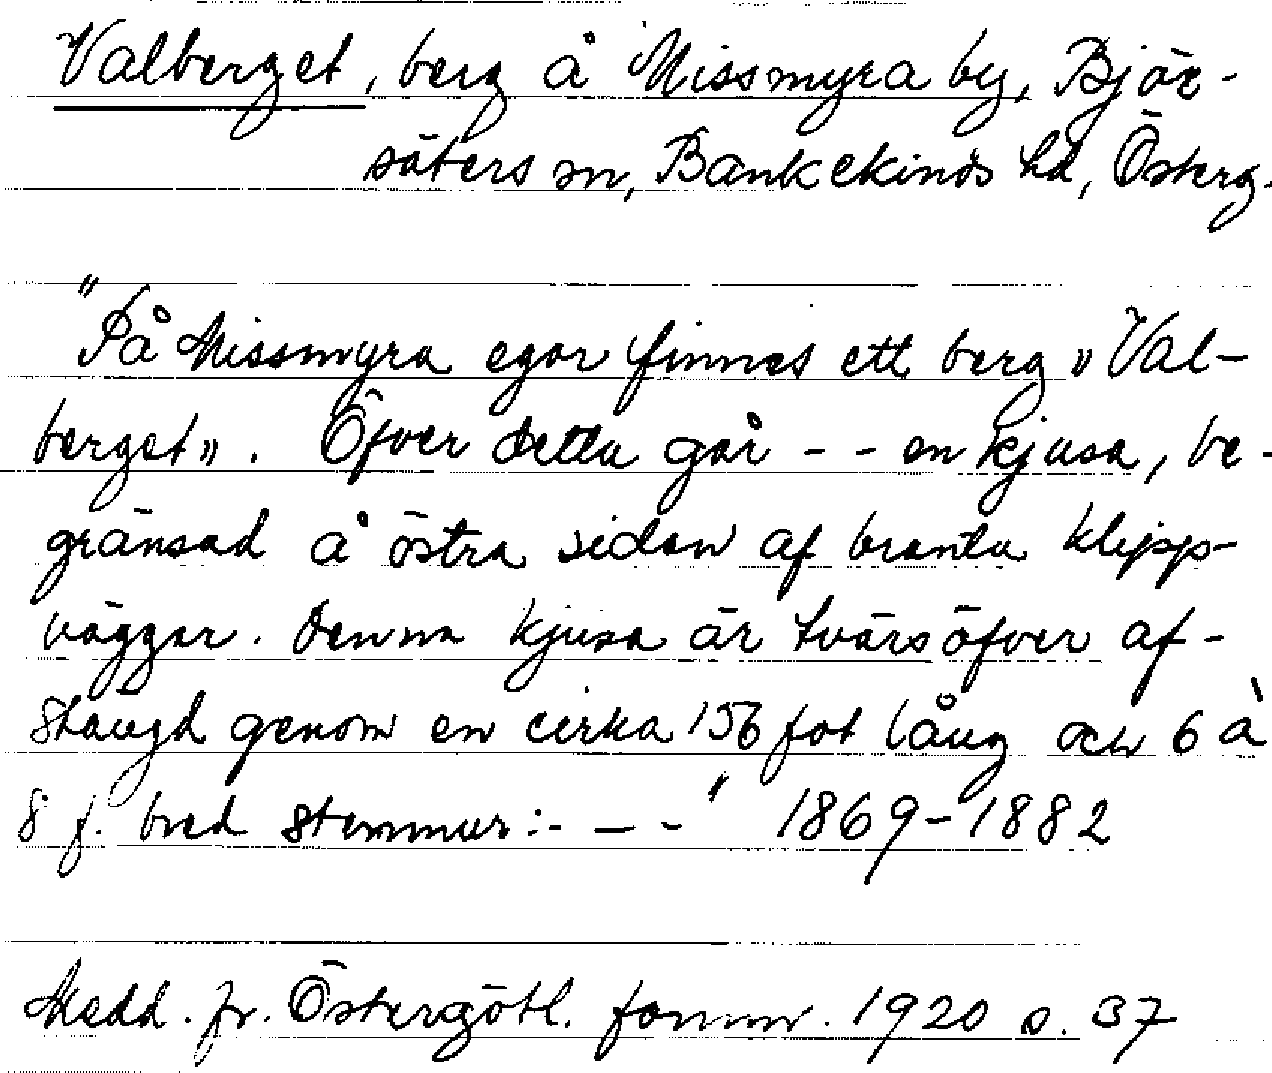 Valberget, berg å Missmyra by, Björ-
säters sn, Bankekinds hd, Österg.
"På Missmyra egor finnes ett berg »Val-
berget». Öfver detta går - - en kjusa, be-
gränsad å östra sidan af branta klipp-
väggar. Denna kjusa är tvärsöfver af-
stängd genom en cirka 156 fot lång och 6 à
8 f. bred stenmur:- - -" 1869-1882
Medd. fr. Östergötl. fornm. 1920 s. 37